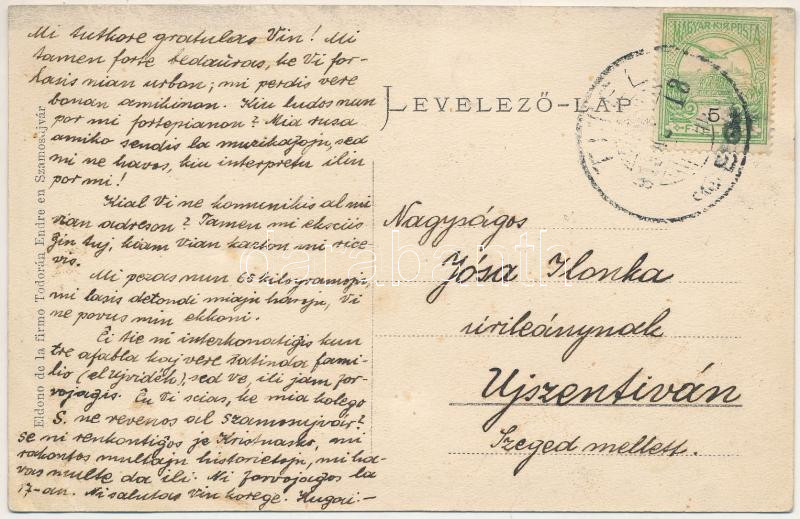 Mi tutkore gratulas Vin! Mi
tamen forte bedaŭras, ke Vi for-
lasis nian urbon; mi perdis vere
bonan amikinon. Kiu ludos nun
por mi fortepianon? Mia rusa
amiko sendis la muzikaĵojn, sed
mi ne havas, kiu interpretu ilin
por mi!
Kial Vi ne komunikis al mi
vian adreson? Tamen mi eksciis
ĝin tuj, kiam Vian karton mi rice-
vis.
Mi pezas nun 65 kilogramojn,
mi lasis detondi miajn harojn, Vi
ne povus min ekkoni.
Ĉi tie mi interkonatiĝis kun
tre afabla kaj vere ŝatinda fami-
lio (el Ujvidék), sed ve, ili jam for-
vojaĝis. Ĉu Vi scias, ke mia kolego
S. ne revenos al Szamosujvár?
Se ni renkontiĝos je Kristnasko, mi
rakontos multajn historietojn, mi ha-
vas multe da ili. Ni forvojaĝos la
17-an. Ni salutas Vin kore ĝe. Hugoi.-
Eldono de la firmo Todorán Endre en Szamosujvár
LEVELEZŐ-LAP
MAGYAR KIR. POSTA
5
18
Nagyságos
Jósa Ilonka
úrileánynak
Ujszentiván
Szeged mellett.
darabanth